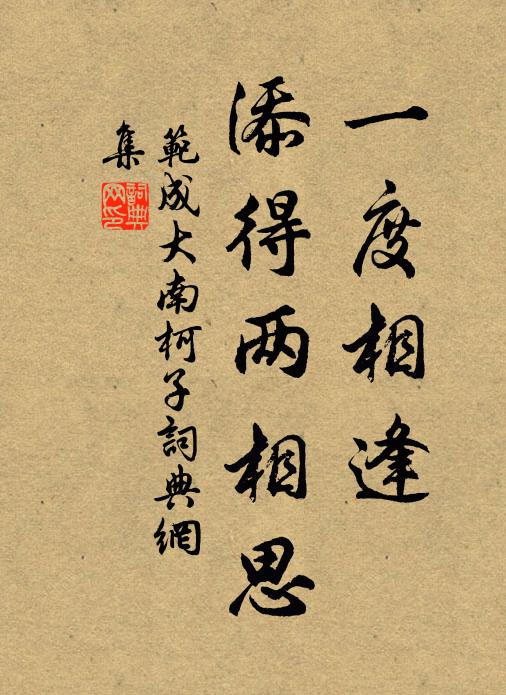 一度相逢
添得两相思
範成大南柯子詞典網
集
詞典网印